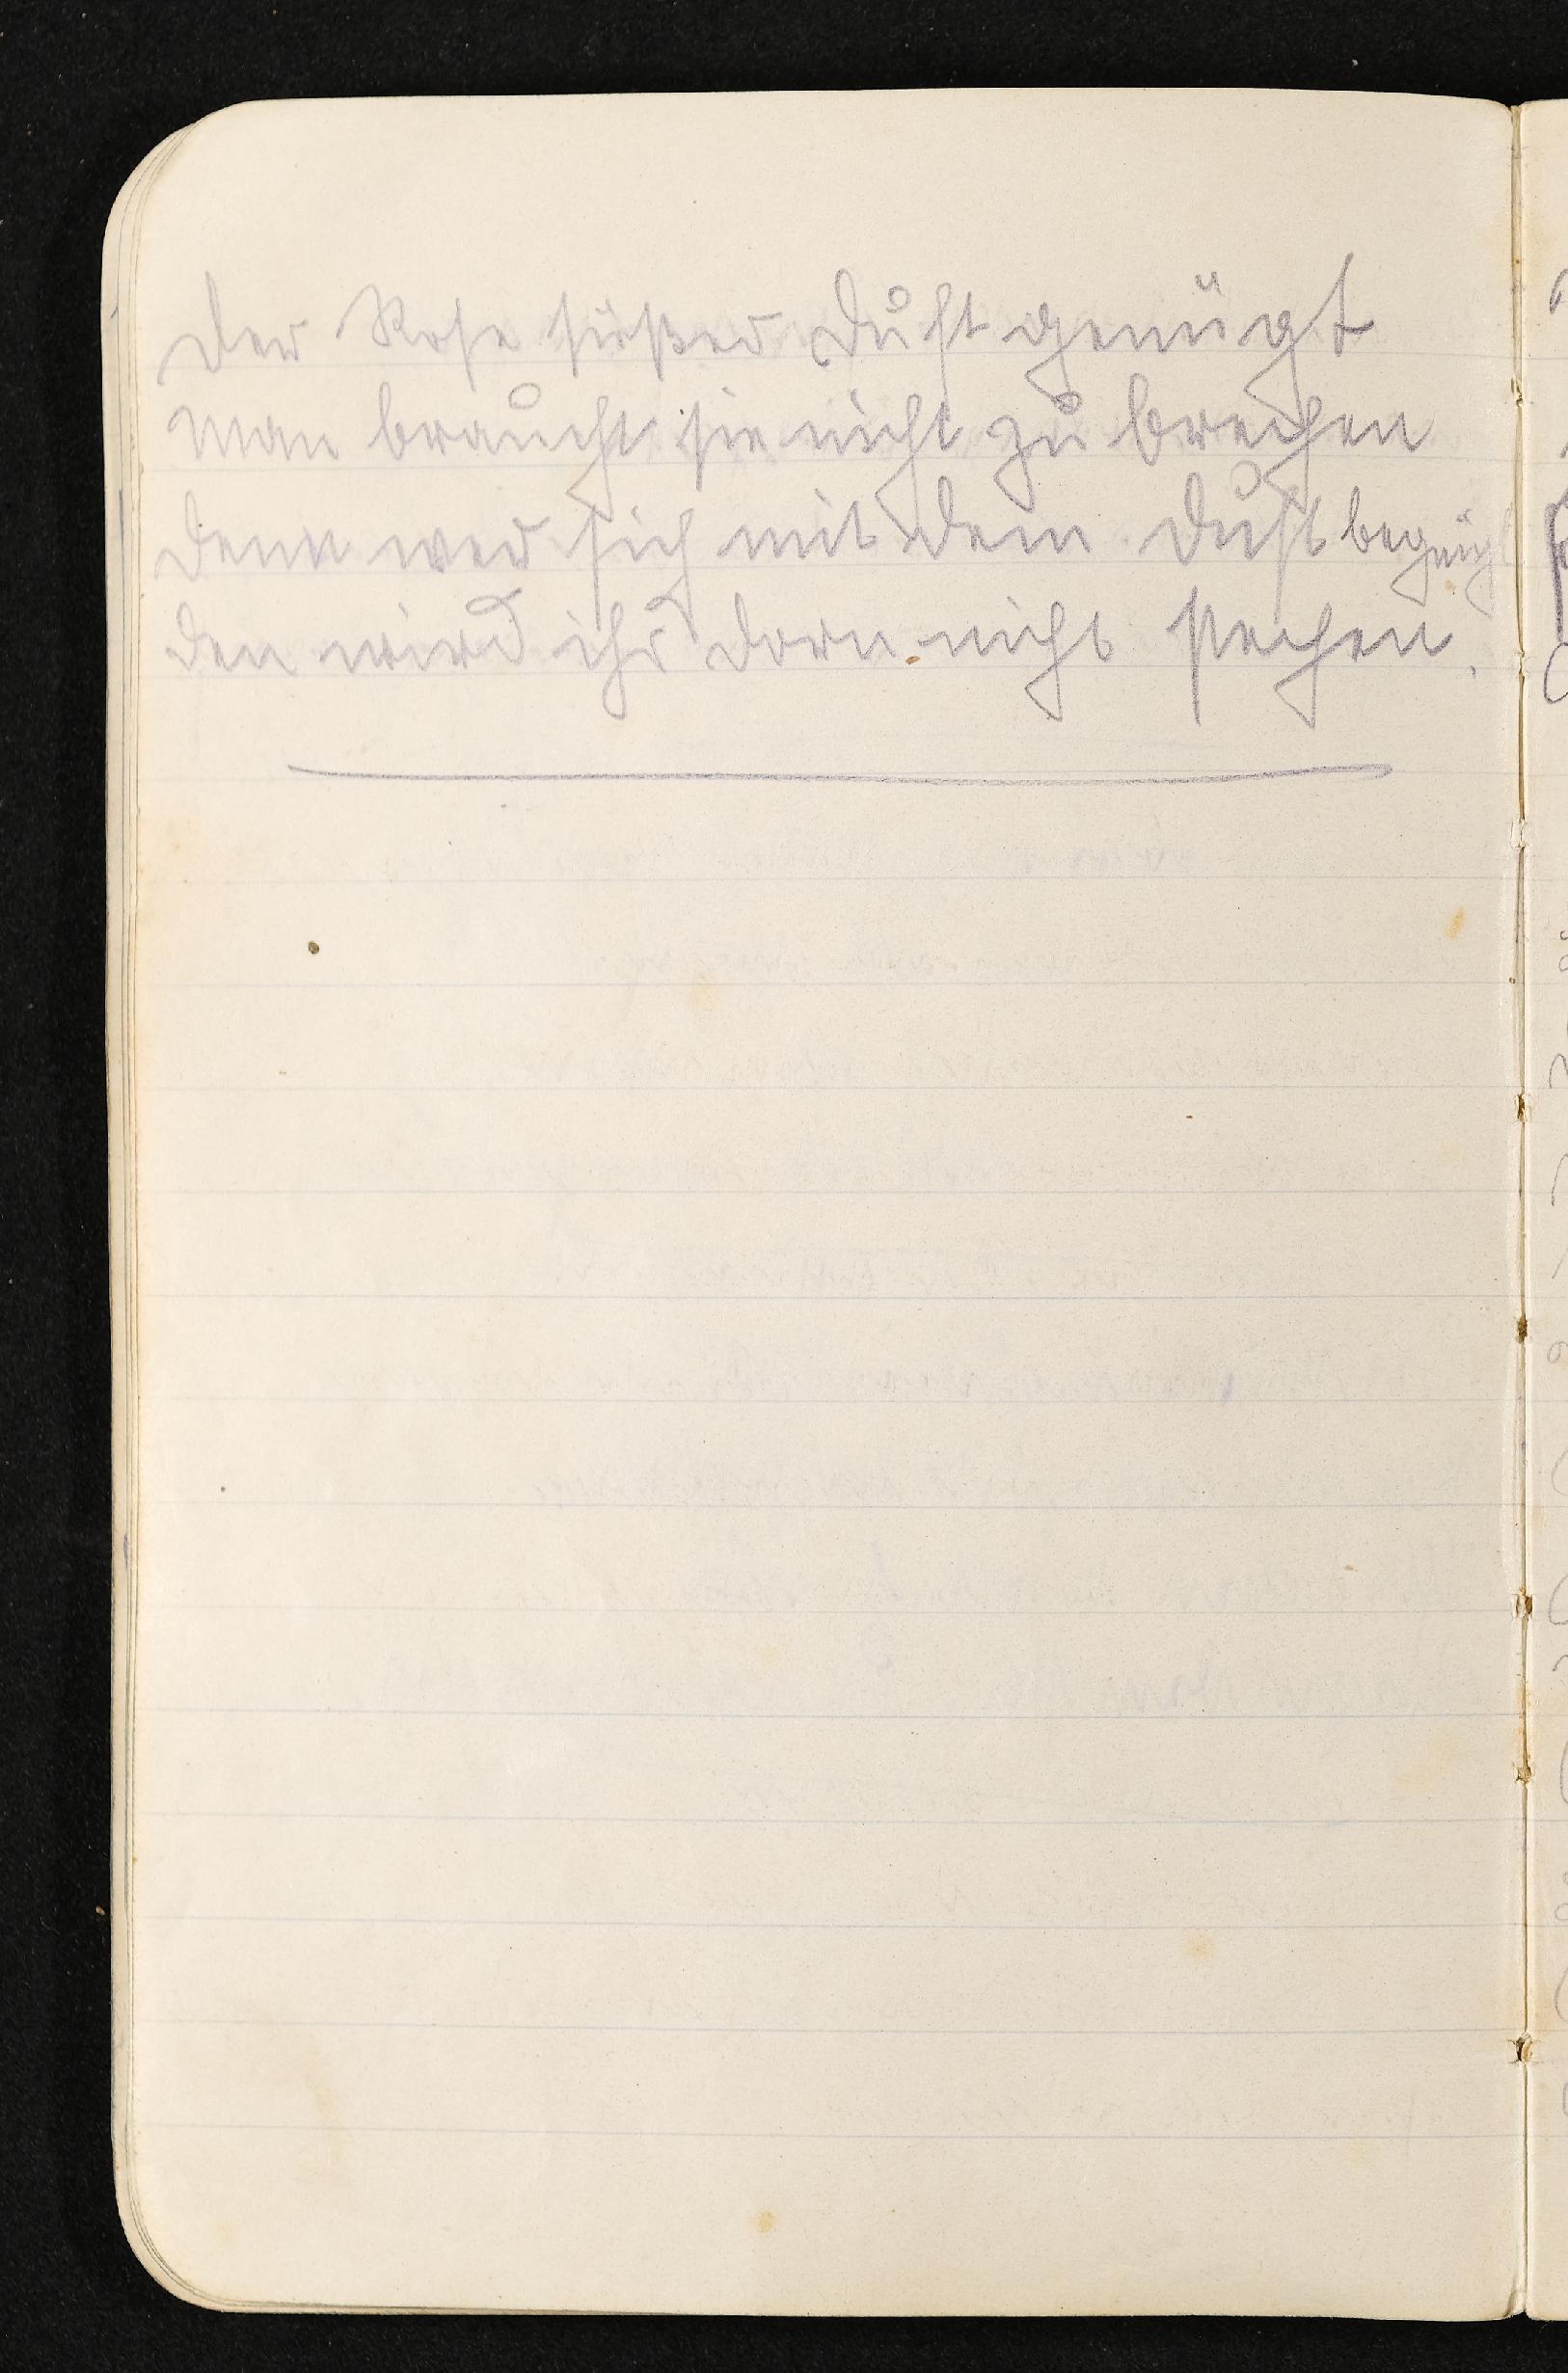 Der Rose süßer Duft genügt
Man braucht sie nicht zu brechen
Denn wer sich mit dem Duft begnügt
den wird ihr Dorn nicht stechen.